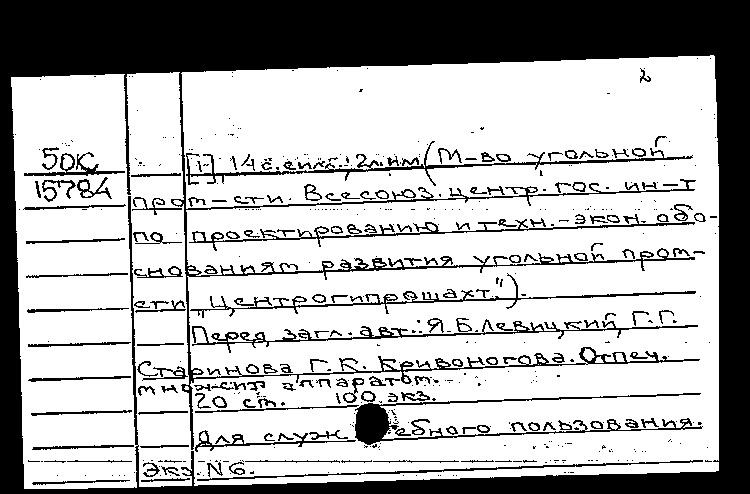 2
50К
15784
[1], 14 с. с илл.; 2 л. нм. (М-во угольной
пром-сти. Всесоюз. центр. гос. ин-т
по проектированию и техн.-экон. обо-
снованиям развития угольной пром-
сти „Центрогипрошахт").
Перед загл. авт.: Я.Б.Левицкий, Г.Г.
Старинова, Г.К. Кривоногова. Отпеч.
множит аппаратом.
20 см. 100 экз.
Для служ ебного пользования.
Экз. N6.